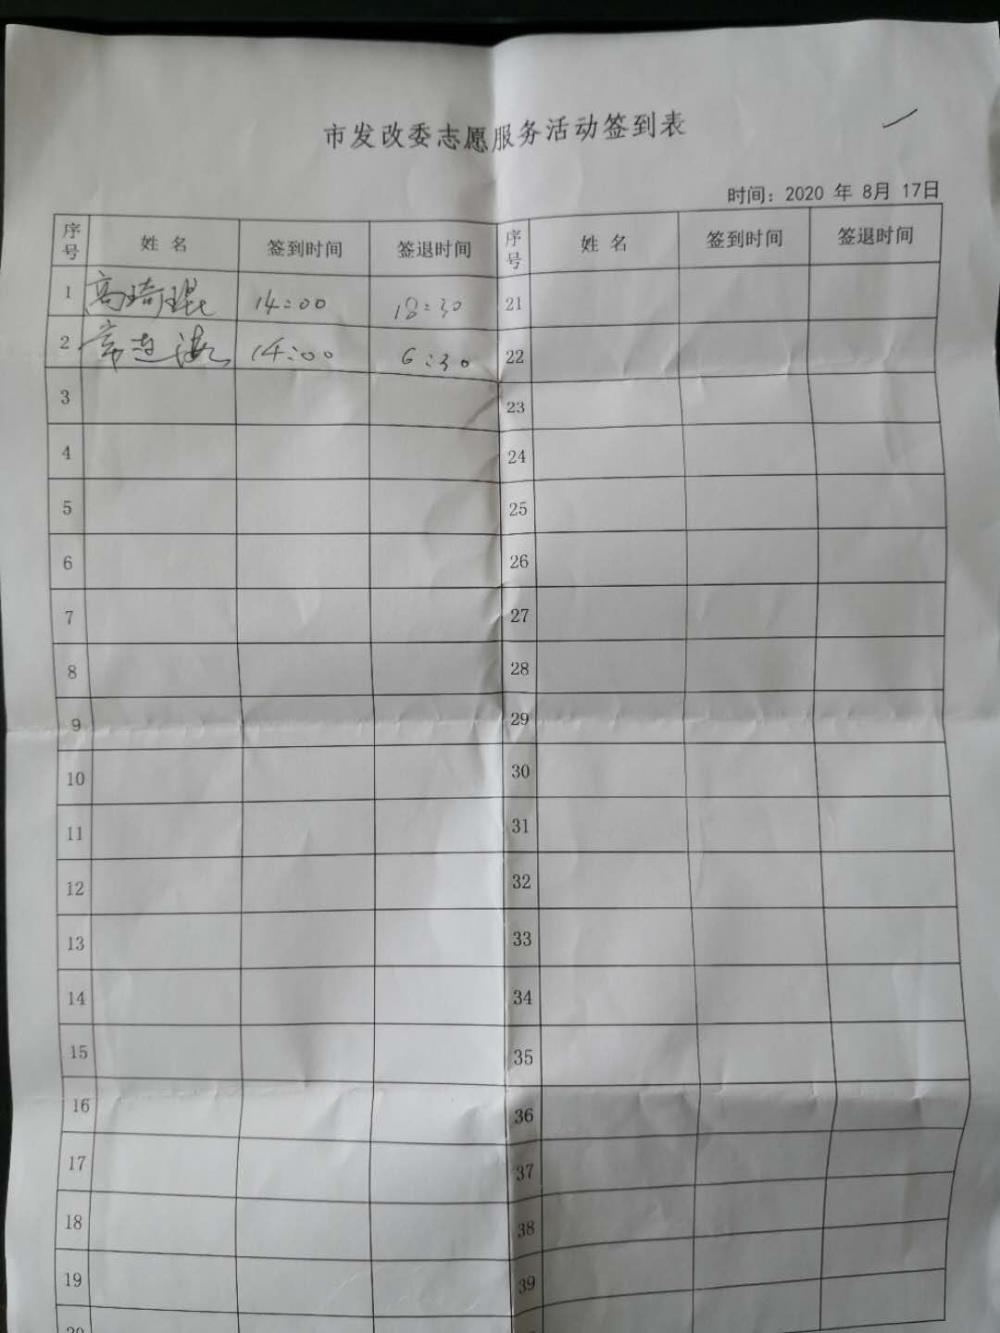 市发改委志愿服务活动签到表
时间：2020 年 8月 17日
序号 姓 名 签到时间 签退时间 序号 姓 名 签到时间 签退时间
1 高琦琨 14:00 18:30 21
2 14:00 6:30 22
3 23
4 24
5 25
6 26
7 27
8 28
9 29
10 30
11 31
12 32
13 33
14 34
15 35
16 36
17 37
18 38
19 39
20